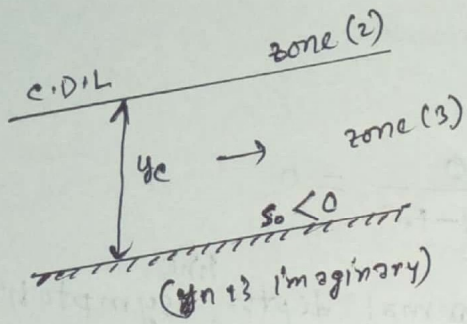 zone (2)
C.D.L
zone (3)
yc →
S₀ < 0
(yn is imaginary)